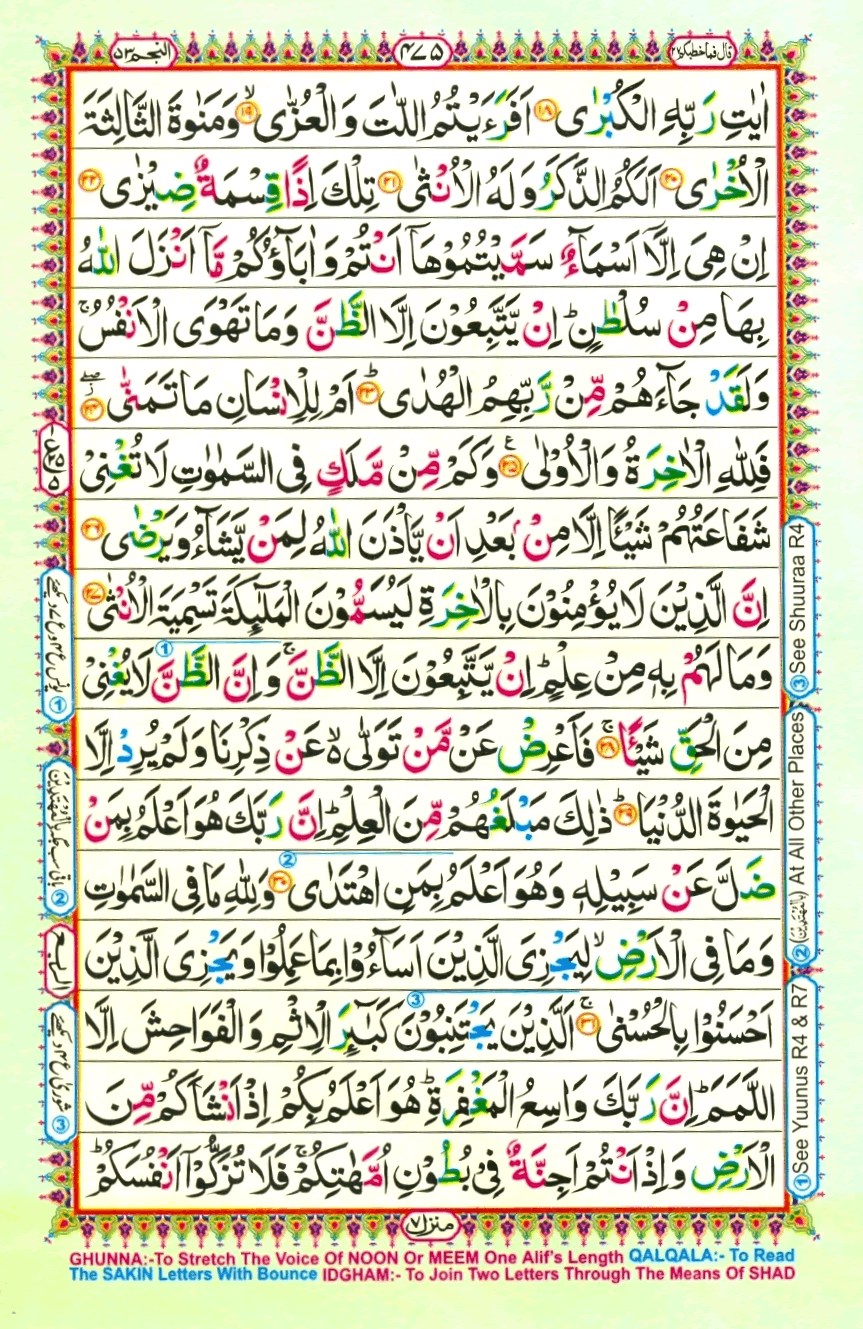 قال فما خطبکم ۲۷
۴۷۵
النجم ۵۳
اٰیٰتِ رَبِّهِ الْكُبْرٰى ۝۱۸ اَفَرَءَیْتُمُ اللّٰتَ وَ الْعُزّٰى ۝۱۹ وَ مَنٰوةَ الثَّالِثَةَ
الْاُخْرٰى ۝۲۰ اَلَكُمُ الذَّكَرُ وَ لَهُ الْاُنْثٰى ۝۲۱ تِلْكَ اِذًا قِسْمَةٌ ضِیْزٰى ۝۲۲
اِنْ هِیَ اِلَّاۤ اَسْمَآءٌ سَمَّیْتُمُوْهَاۤ اَنْتُمْ وَ اٰبَآؤُكُمْ مَّاۤ اَنْزَلَ اللّٰهُ
بِهَا مِنْ سُلْطٰنٍ ؕ اِنْ یَّتَّبِعُوْنَ اِلَّا الظَّنَّ وَ مَا تَهْوَى الْاَنْفُسُ ۚ
وَ لَقَدْ جَآءَهُمْ مِّنْ رَّبِّهِمُ الْهُدٰى ؕ۝۲۳ اَمْ لِلْاِنْسَانِ مَا تَمَنّٰى ۝۲۴
فَلِلّٰهِ الْاٰخِرَةُ وَ الْاُوْلٰى ۝۲۵ وَ كَمْ مِّنْ مَّلَكٍ فِی السَّمٰوٰتِ لَا تُغْنِیْ
شَفَاعَتُهُمْ شَیْـًٔا اِلَّا مِنْۢ بَعْدِ اَنْ یَّاْذَنَ اللّٰهُ لِمَنْ یَّشَآءُ وَ یَرْضٰى ۝۲۶
اِنَّ الَّذِیْنَ لَا یُؤْمِنُوْنَ بِالْاٰخِرَةِ لَیُسَمُّوْنَ الْمَلٰٓىِٕكَةَ تَسْمِیَةَ الْاُنْثٰى ۝۲۷
وَ مَا لَهُمْ بِهٖ مِنْ عِلْمٍ ؕ اِنْ یَّتَّبِعُوْنَ اِلَّا الظَّنَّ ۚ وَ اِنَّ الظَّنَّ لَا یُغْنِیْ
مِنَ الْحَقِّ شَیْـًٔا ۚ۝۲۸ فَاَعْرِضْ عَنْ مَّنْ تَوَلّٰى ۙ۬ عَنْ ذِكْرِنَا وَ لَمْ یُرِدْ اِلَّا
الْحَیٰوةَ الدُّنْیَا ؕ۝۲۹ ذٰلِكَ مَبْلَغُهُمْ مِّنَ الْعِلْمِ ؕ اِنَّ رَبَّكَ هُوَ اَعْلَمُ بِمَنْ
ضَلَّ عَنْ سَبِیْلِهٖ وَ هُوَ اَعْلَمُ بِمَنِ اهْتَدٰى ۝۳۰ وَ لِلّٰهِ مَا فِی السَّمٰوٰتِ
وَ مَا فِی الْاَرْضِ ۙ لِیَجْزِیَ الَّذِیْنَ اَسَآءُوْا بِمَا عَمِلُوْا وَ یَجْزِیَ الَّذِیْنَ
اَحْسَنُوْا بِالْحُسْنٰى ۚ۝۳۱ اَلَّذِیْنَ یَجْتَنِبُوْنَ كَبٰٓىِٕرَ الْاِثْمِ وَ الْفَوَاحِشَ اِلَّا
اللَّمَمَ ؕ اِنَّ رَبَّكَ وَاسِعُ الْمَغْفِرَةِ ؕ هُوَ اَعْلَمُ بِكُمْ اِذْ اَنْشَاَكُمْ مِّنَ
الْاَرْضِ وَ اِذْ اَنْتُمْ اَجِنَّةٌ فِیْ بُطُوْنِ اُمَّهٰتِكُمْ ۚ فَلَا تُزَكُّوْۤا اَنْفُسَكُمْ ؕ
منزل ۷
③ See Shuuraa R4
② (بِالْمُهْتَدِیْنَ) At All Other Places
① See Yuunus R4 & R7
الربع
GHUNNA:-To Stretch The Voice Of NOON Or MEEM One Alif's Length QALQALA:- To Read
The SAKIN Letters With Bounce IDGHAM:- To Join Two Letters Through The Means Of SHAD